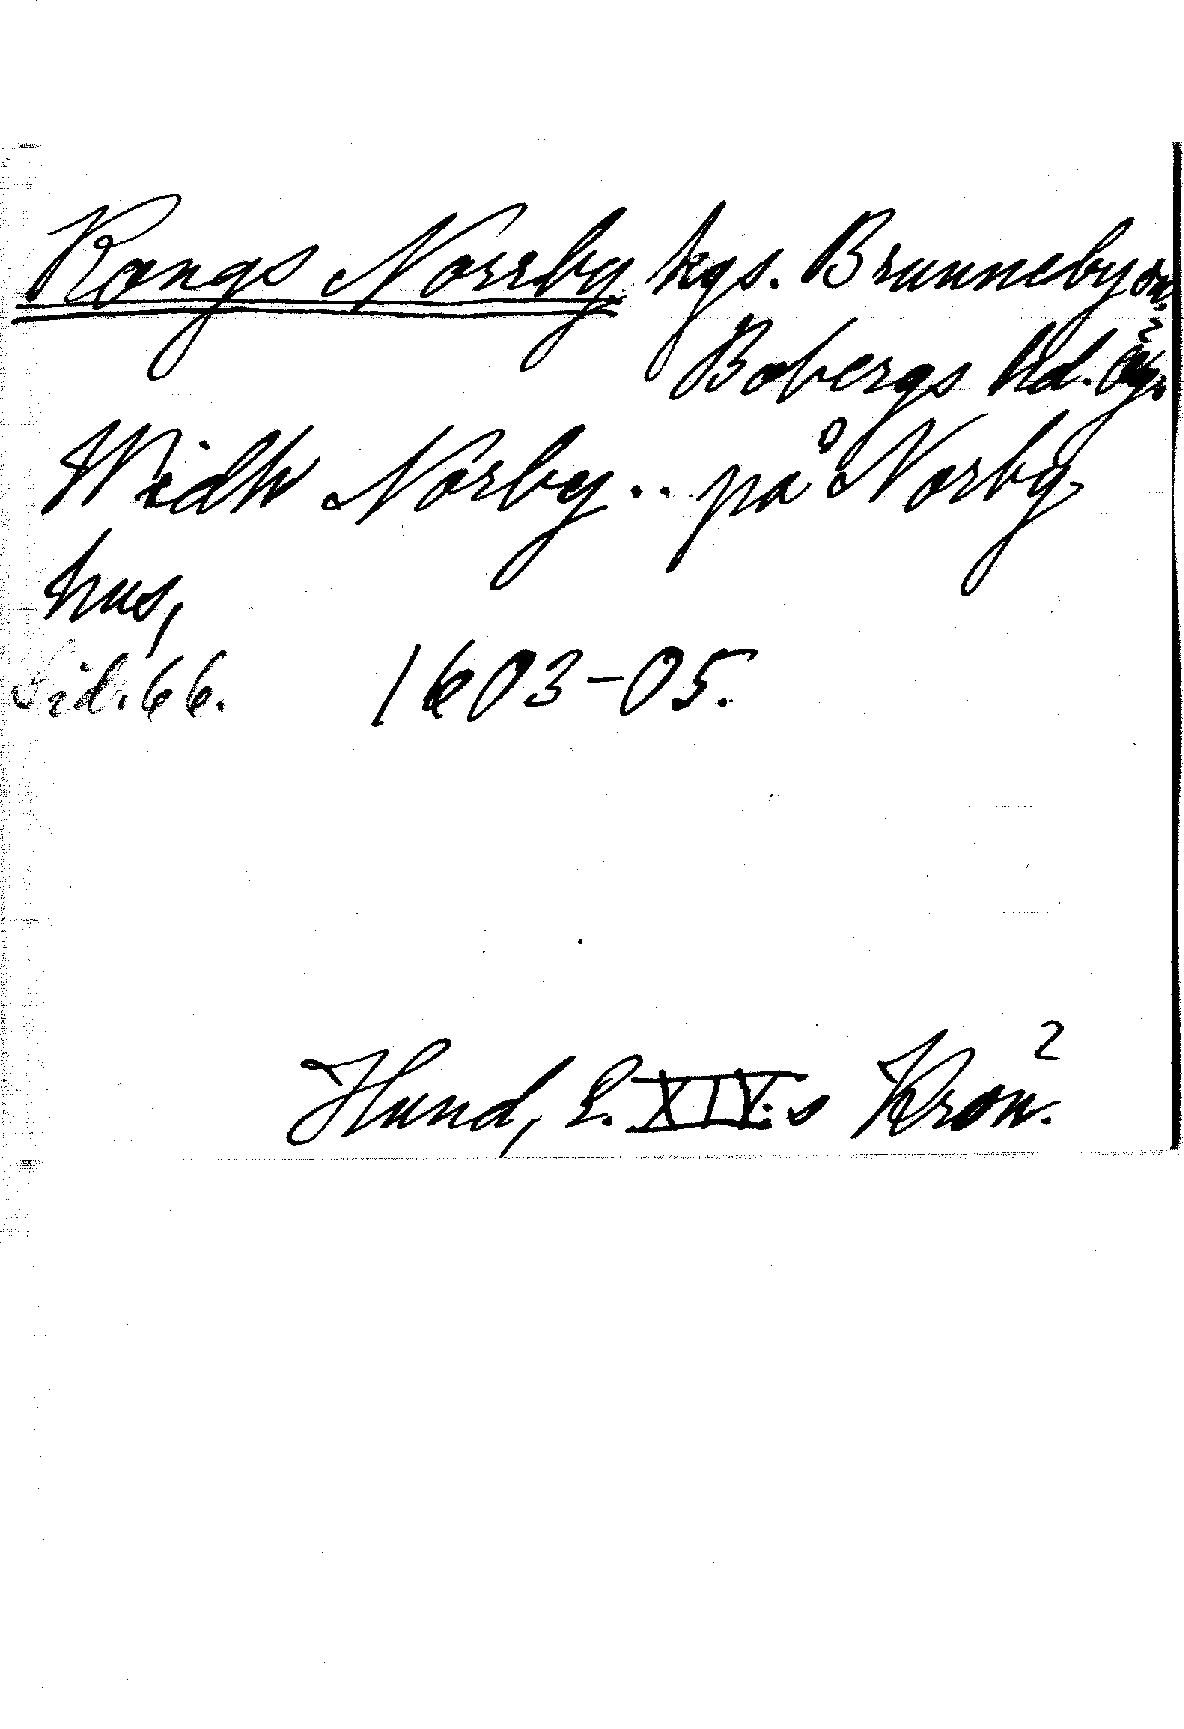 Kongs Norrby kgs. Brunneby sn.
Bobergs hd. Ög.
Widh Norby .. på Norby
hus,
Sid. 66. 1603-05.
Hund, E. XIV:s Krön.²